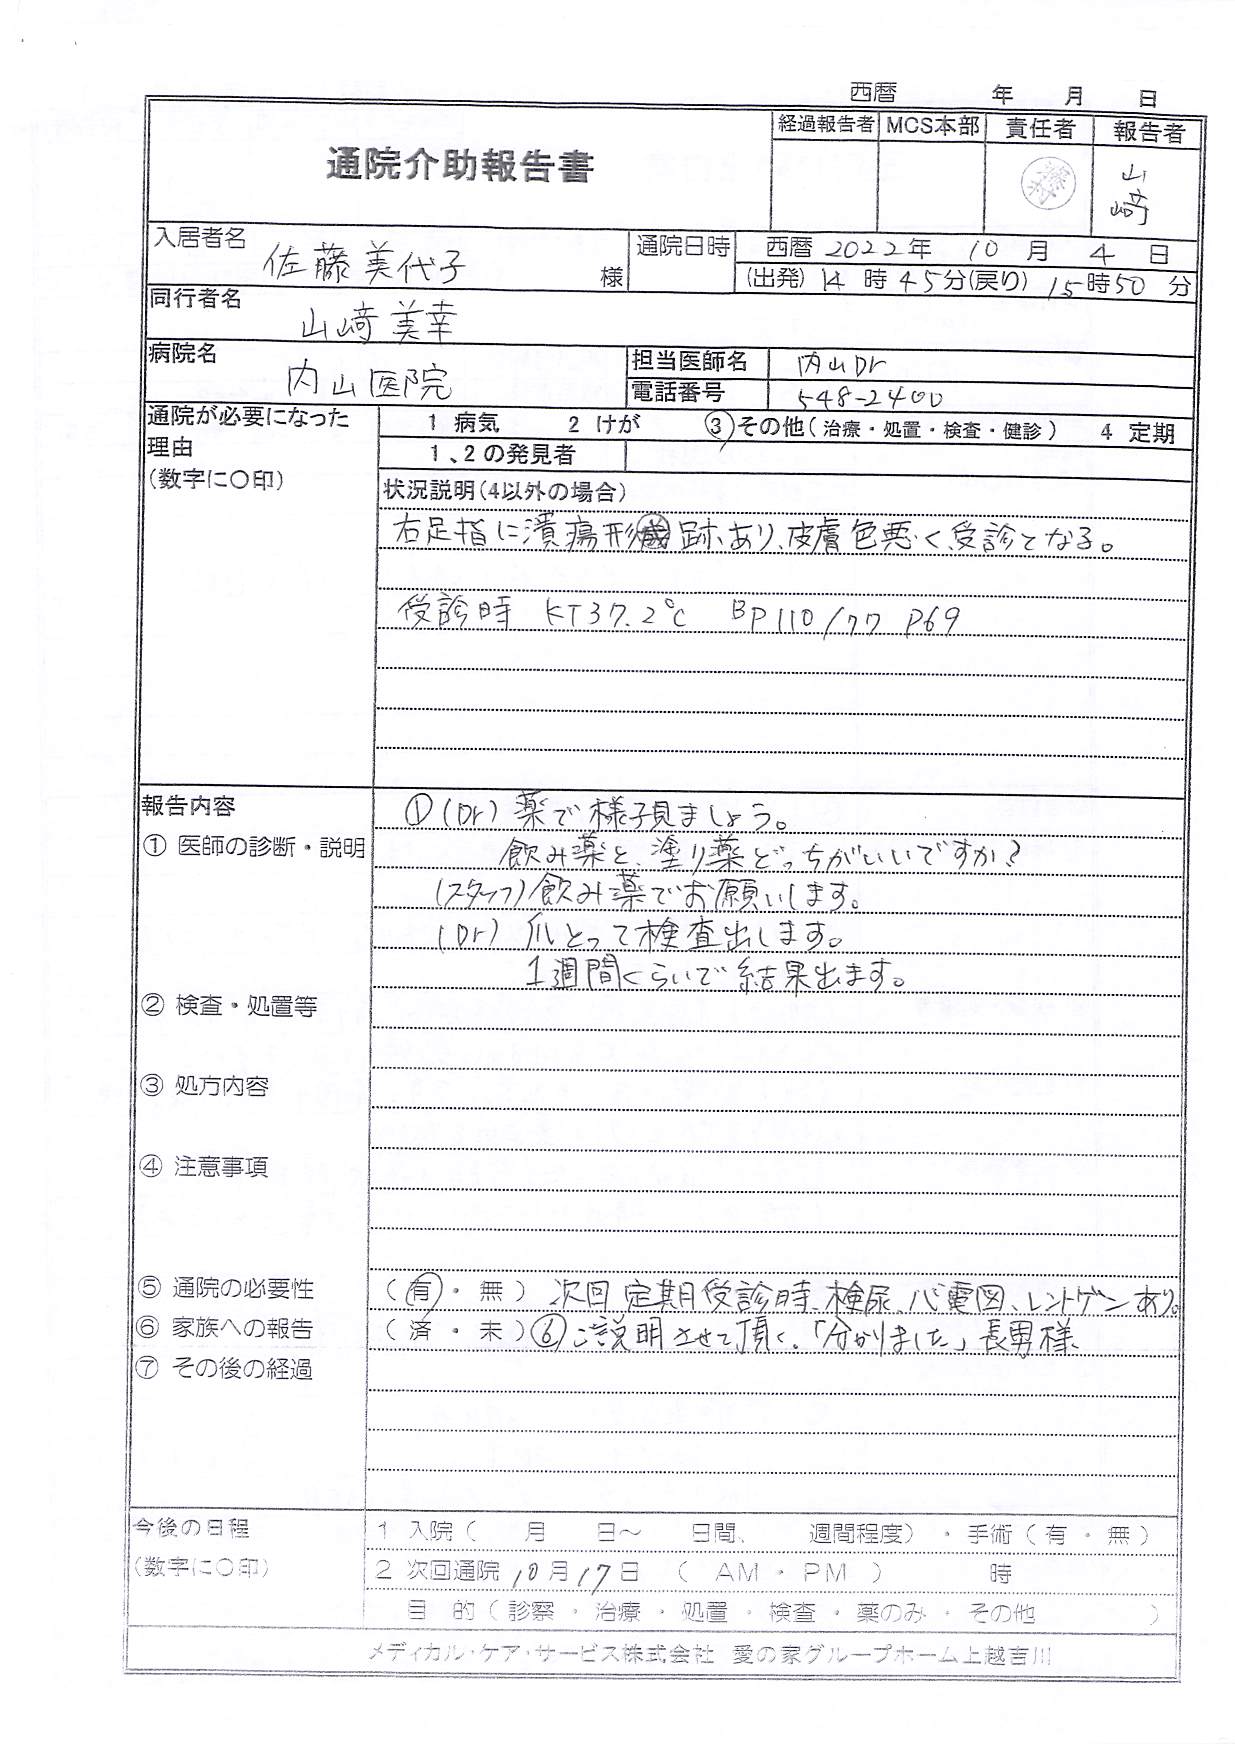 西暦　　年　月　日
通院介助報告書
経過報告者 MCS本部 責任者 報告者
山﨑
入居者名 佐藤美代子 様
通院日時 西暦 2022年 10月 4日
(出発) 14時45分(戻り) 15時50分
同行者名 山﨑美幸
病院名 内山医院
担当医師名 内山Dr
電話番号 548-2400
通院が必要になった理由
(数字に〇印)
1 病気 2 けが ③その他(治療・処置・検査・健診) 4 定期
1、2の発見者
状況説明(4以外の場合)
右足指に潰瘍形成跡あり、皮膚色悪く、受診となる。
受診時 KT37.2℃ BP110/77 P69
報告内容
① 医師の診断・説明
①(Dr)薬で様子見ましょう。
飲み薬と、塗り薬どっちがいいですか?
(スタッフ)飲み薬でお願いします。
(Dr) 爪とって検査出します。
1週間くらいで結果出ます。
② 検査・処置等
③ 処方内容
④ 注意事項
⑤ 通院の必要性 (有・無) 次回定期受診時、検尿、心電図、レントゲンあり。
⑥ 家族への報告 (済・未) ⑥ご説明させて頂く、「分かりました」長男様
⑦ その後の経過
今後の日程
(数字に〇印)
1 入院(　月　日～　日間、　週間程度)・手術(有・無)
2 次回通院 10月17日 (AM・PM)　時
目 的(診察・治療・処置・検査・薬のみ・その他　)
メディカル・ケア・サービス株式会社 愛の家グループホーム上越吉川